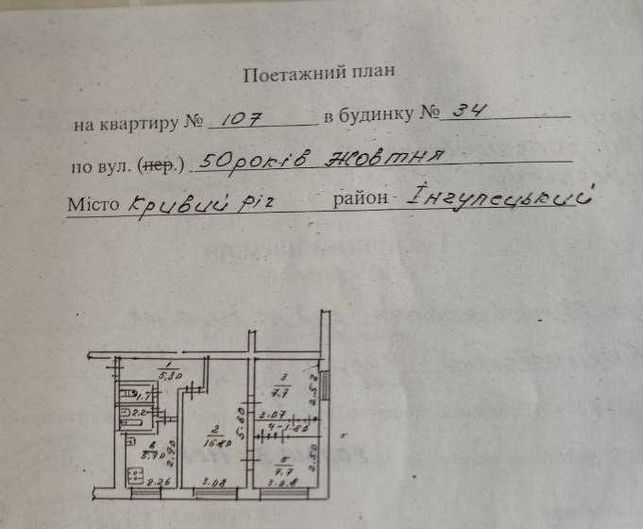 Поетажний план
на квартиру № 107 в будинку № 34
по вул. (пер.) 50 років Жовтня
Місто Кривий ріг район Інгулецький
1
5,30
1.7
2.2
2
3
7.7
2.52
3.07
5.60
6
2.90
2.26
3.08
5
7.7
2.50